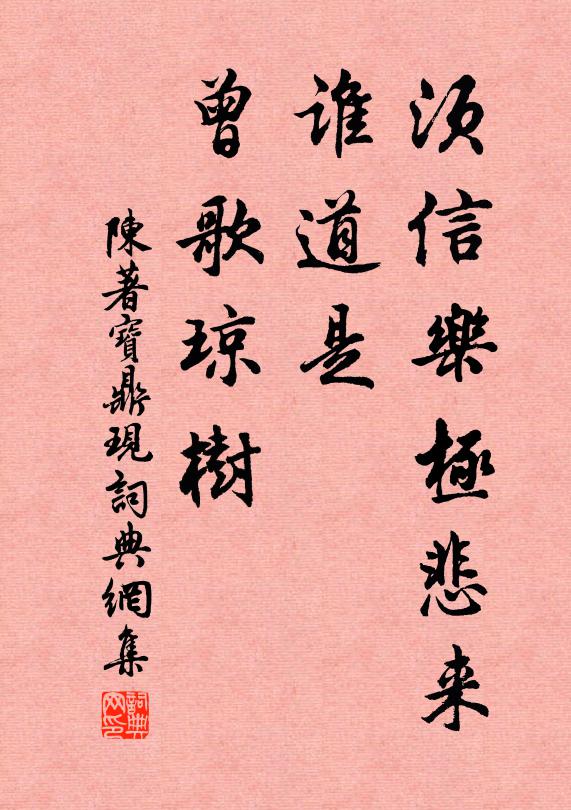 须信樂極悲来
誰道是
曾歌琼樹
陳著寶鼎現詞典網集
詞典网印